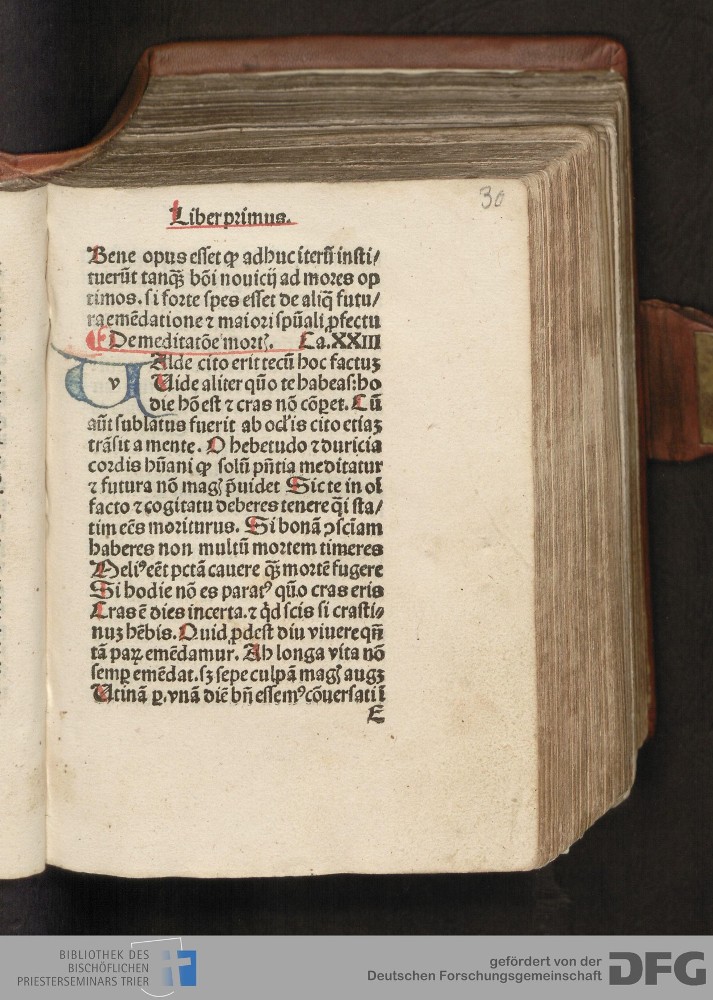 30
Liber primus.
Bene opus esset ꝙ adhuc iterũ insti/
tuerũt tanqᷓ bõi nouicij ad mores op
timos. si forte spes esset de aliq̃ futu/
ra emẽdatione ⁊ maiori spũali ꝓfectu
De meditatõe mortꝭ. Ca. XXIII
vAlde cito erit tecũ hoc factuꝫ
Uide aliter qũo te habeas: ho
die hõ est ⁊ cras nõ cõꝑet. Cũ
aũt sublatus fuerit ab ocl'is cito etiaꝫ
trãsit a mente. O hebetudo ⁊ duricia
cordis hũani ꝙ solũ pñtia meditatur
⁊ futura nõ magꝭ p̃uidet Sic te in oĩ
facto ⁊ cogitatu deberes tenere q̃i sta/
tim eẽs moriturus. Si bonã ꝯsciam̃
haberes non multũ mortem timeres
Meliꝰ eẽt pctã cauere qᷓꝫ mortẽ fugere
Si hodie nõ es paratꝰ qũo cras eris
Cras ẽ dies incerta. ⁊ qd̃ scis si crasti/
nuꝫ hẽbis. Quid ꝓdest diu viuere qñ
tã paꝝ emẽdamur. Ah longa vita nõ
semꝑ emẽdat. sꝫ sepe culpã magꝭ augꝫ
Utinã ꝑ. vnã diẽ bñ essemꝰ cõuersati ĩ
E
BIBLIOTHEK DES
BISCHÖFLICHEN
PRIESTERSEMINARS TRIER
gefördert von der
Deutschen Forschungsgemeinschaft DFG